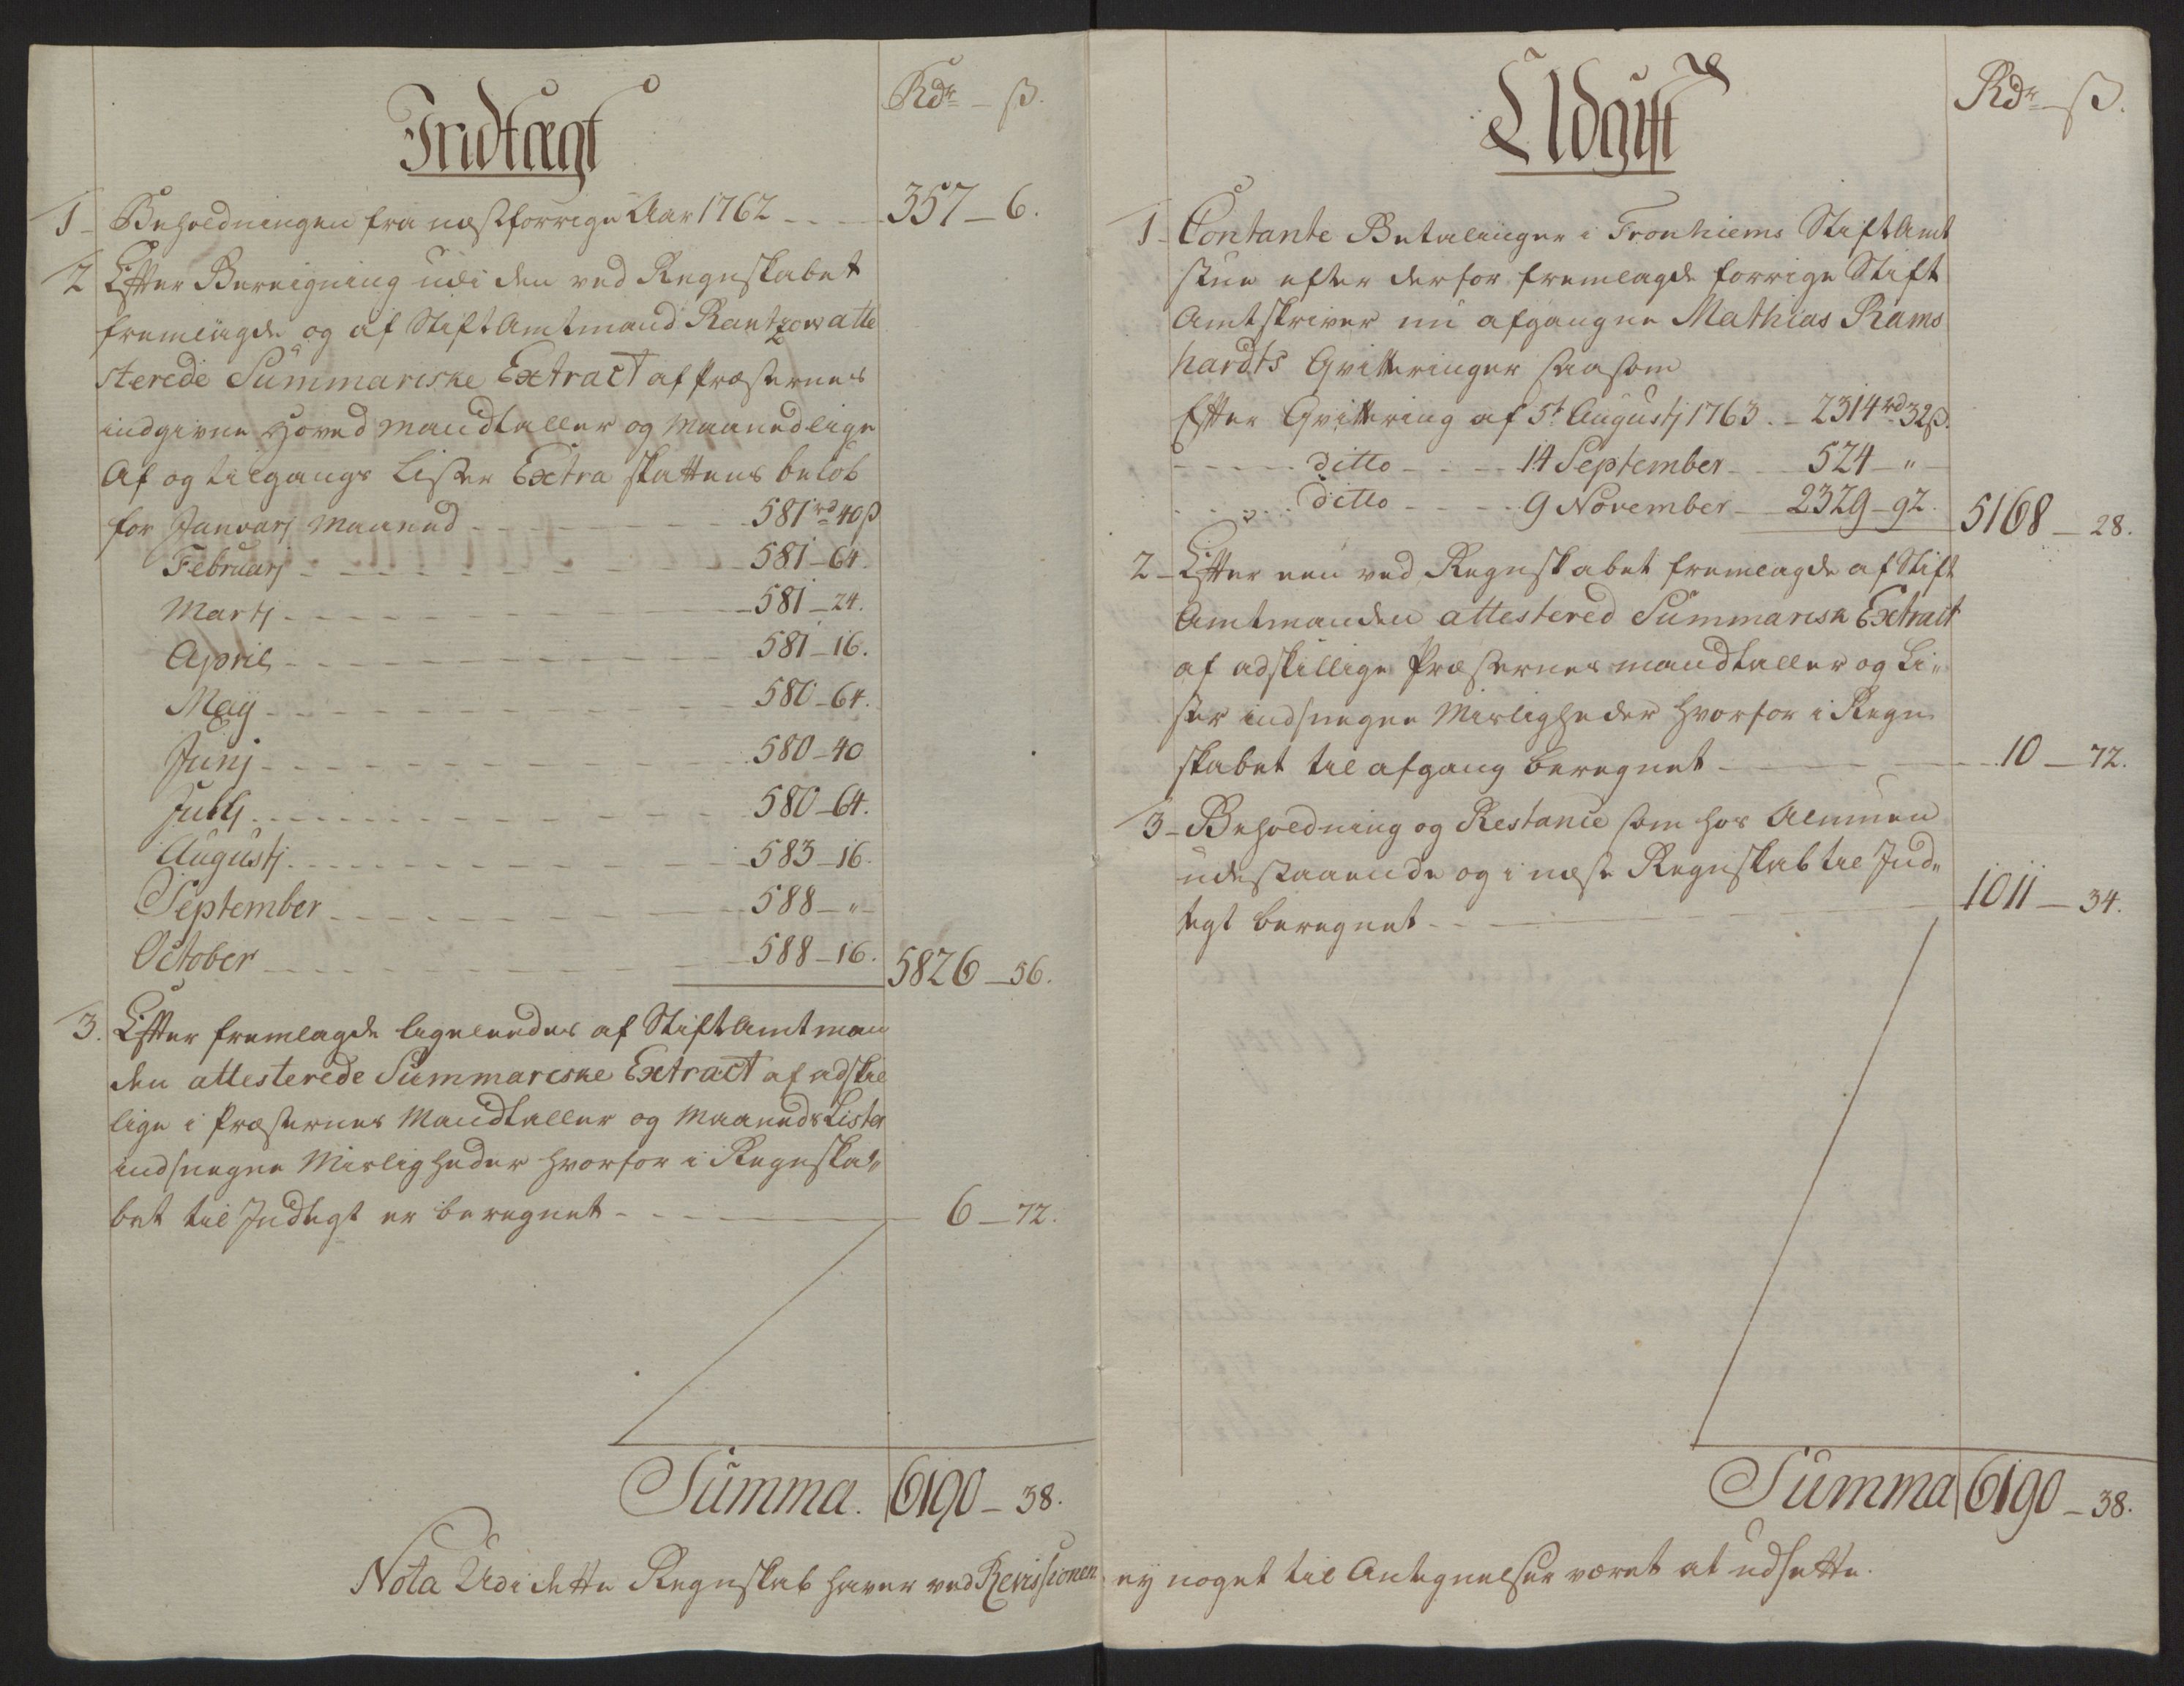 Indtægt
Rdr - ß.
1 Beholdningen fra næstforrige Aar 1762 - - - 357 - 6.
2 Efter Bereigning udi den ved Regnskabet
fremlagde og af StiftAmtmand Rantzow atte
sterede Summariske Extract af Præsternes
indgivne Hoved Mandtaller og Maanedlige
Af og tilgangs Lister Extra skattens beløb
for Januarj Maaned - - - 581 rd 40 ß
Februarj - - - 581 - 64.
Martj - - - 581 - 24.
April - - - 581 - 16.
Maij - - - 580 - 64.
Junj - - - 580 - 40
Julij - - - 580 - 64.
Augustj - - - 583 - 16.
September - - - 588 - " -
October - - - 588 - 16. 5826 - 56.
3. Efter fremlagde ligeleedes af StiftAmtman
den attesterede Summariske Extract af adskil
lige i Præsternes Mandtaller og Maaneds Lister
indsneegne Misligheder hvorfor i Regnska"
bet til Indtegt er beregnet - - - 6 - 72.
Summa. 6190 - 38.
Nota Udi dette Regnskab haver ved Revissionen
Udgift
Rdr - ß.
1 - Contante Betalinger i Tronhiems StiftAmt
stue efter derfor fremlagde forrige Stift
Amtskriver nu afgangne Mathias Rams
hardts Qvitteringer saasom
Efter Qvittering af 5t Augustj 1763. - 2314 rd 32 ß.
- - - ditto - - - 14 September - - 524 - " -
- - - ditto - - - 9 November - - 2329 - 92. 5168 - 28.
2 - Efter een ved Regnskabet fremlagde af Stift
Amtmanden attestered Summarisk Extract
af adskillige Præsternes mandtaller og Li"
ster indsneegne Misligheder hvorfor i Regn
skabet til afgang beregnet - - - 10 - 72.
3 - Beholdning og Restance som hos Almuen
udestaaende og i næste Regnskab til Ind"
tegt beregnet - - - 1011 - 34.
Summa 6190 - 38.
ey noget til Antegnelser været at udsette.